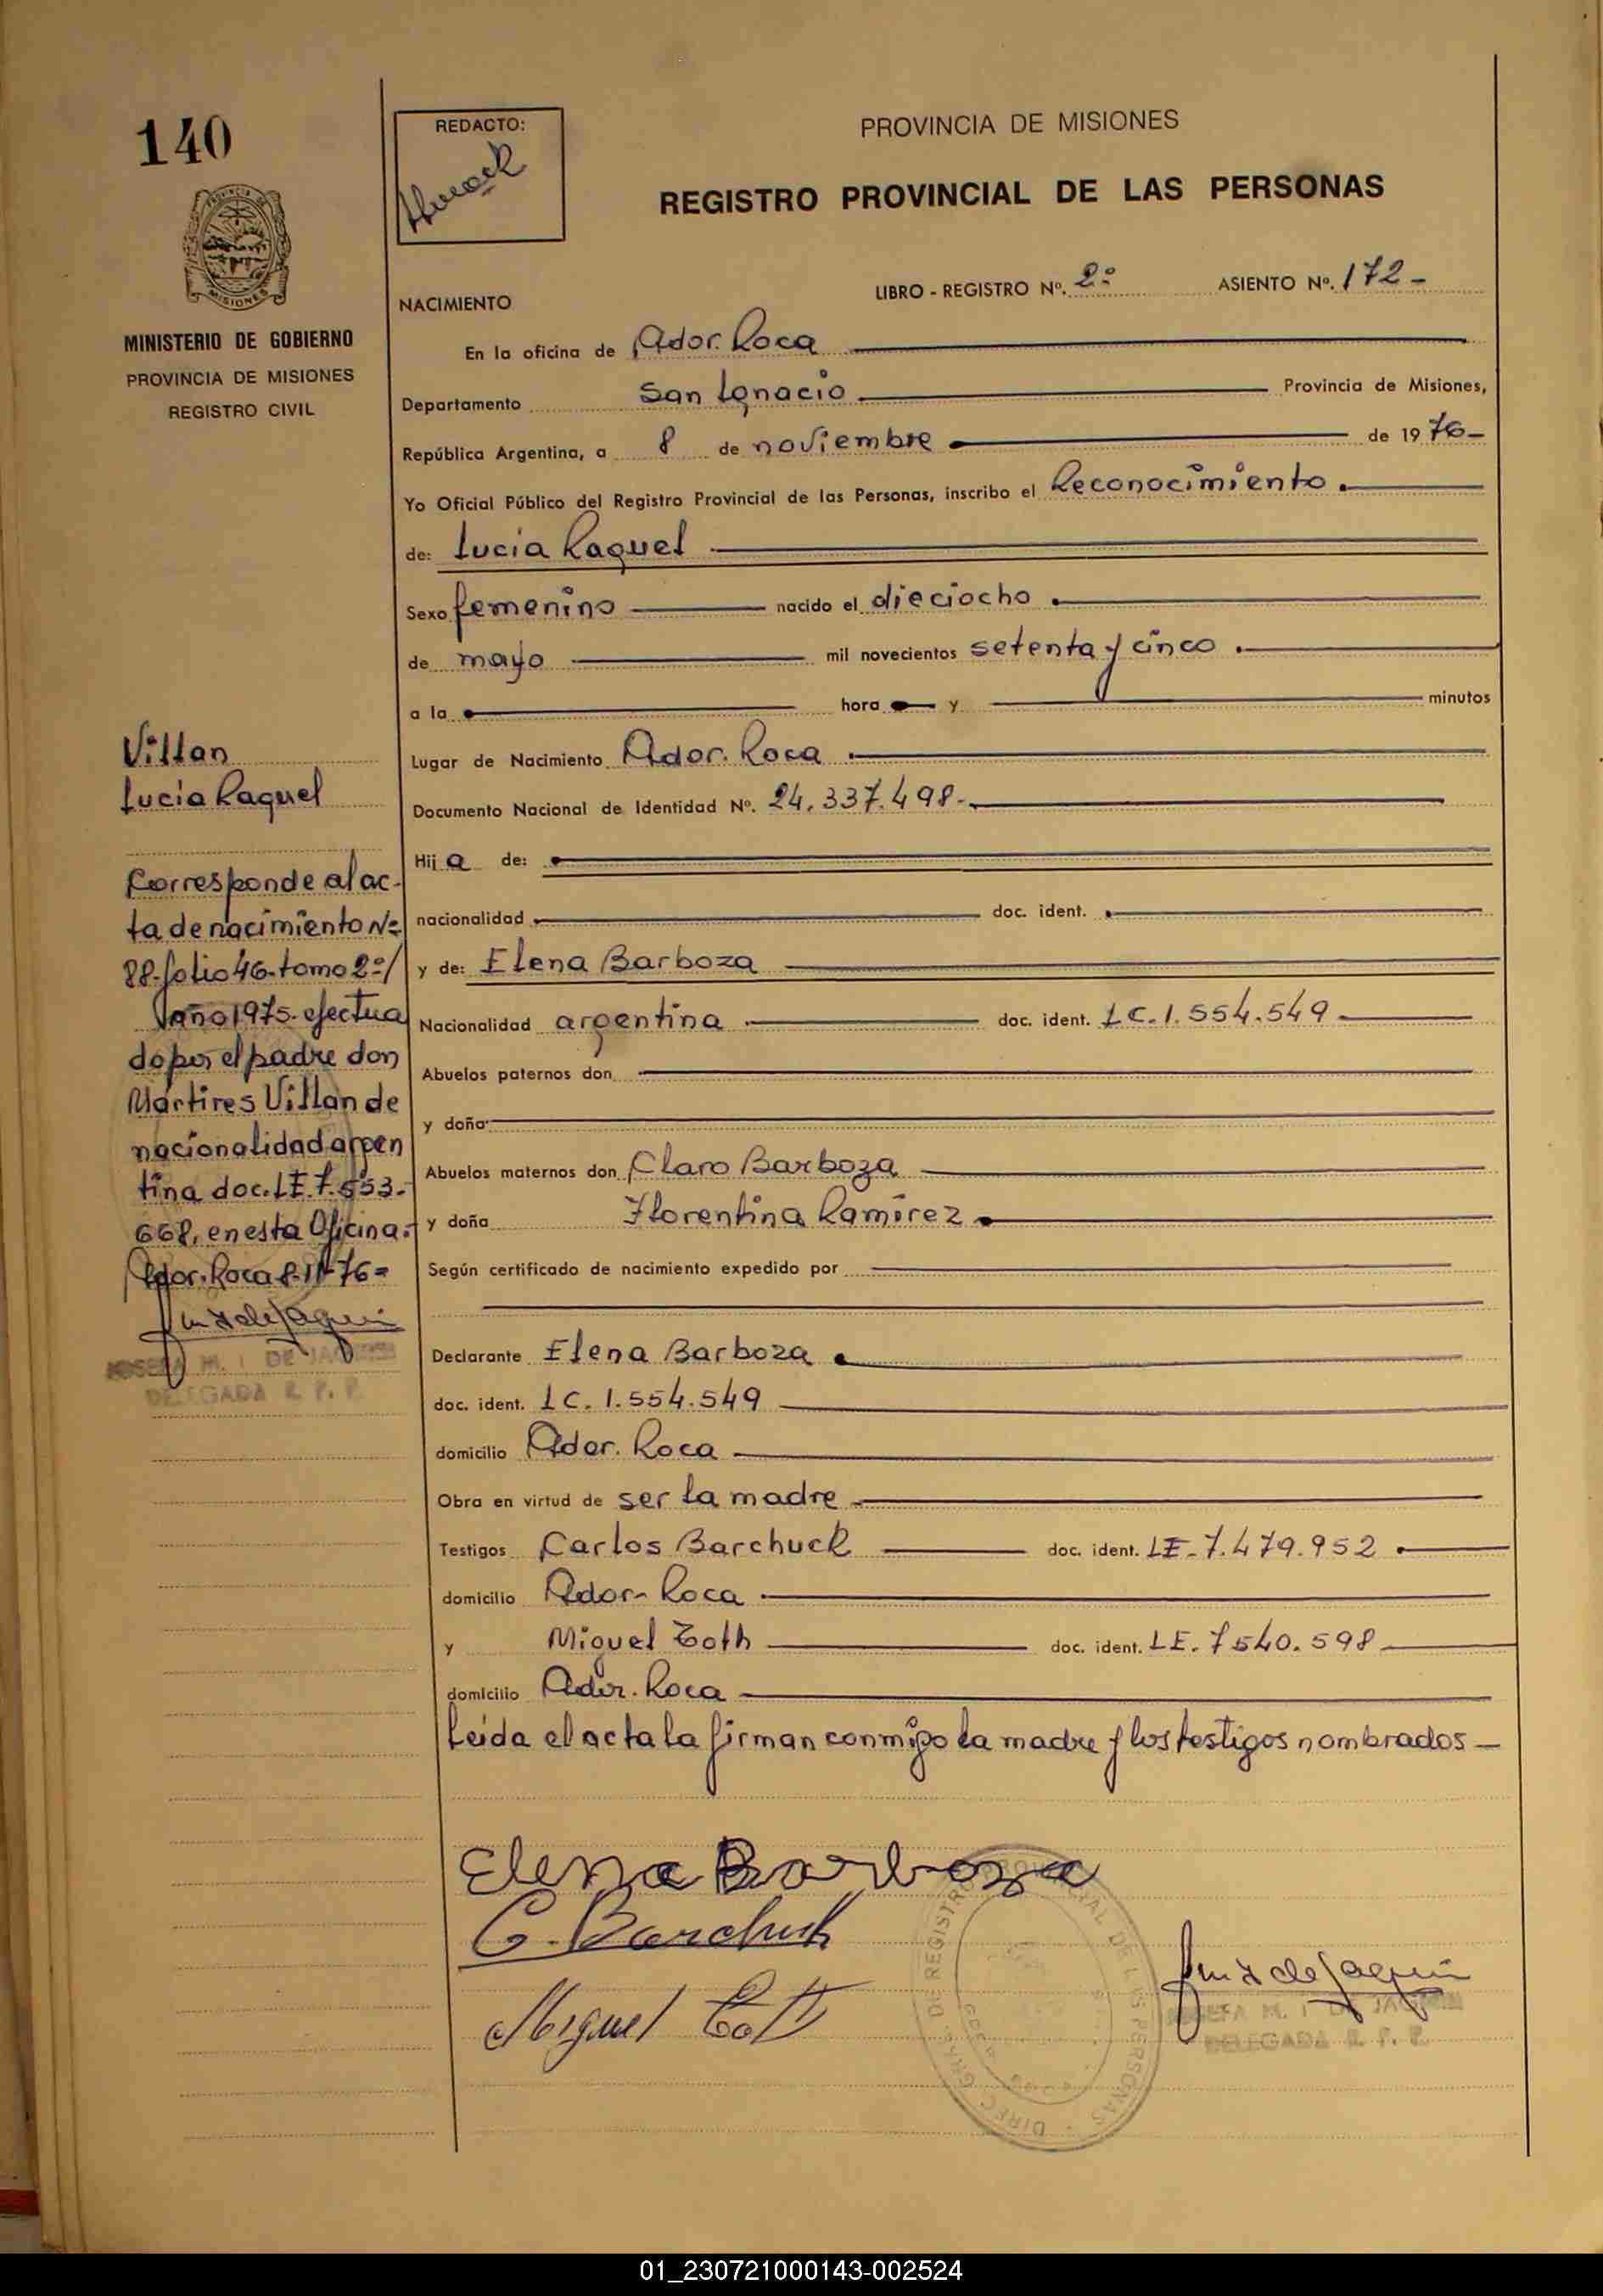 140
REDACTO:
PROVINCIA DE MISIONES
REGISTRO PROVINCIAL DE LAS PERSONAS
PROVINCIA DE
MISIONES
MINISTERIO DE GOBIERNO
PROVINCIA DE MISIONES
REGISTRO CIVIL
NACIMIENTO
LIBRO - REGISTRO Nº. 2º ASIENTO Nº. 172-
En la oficina de Ador. Roca
Departamento San Ignacio Provincia de Misiones,
República Argentina, a 8 de noviembre de 1976-
Yo Oficial Público del Registro Provincial de las Personas, inscribo el Reconocimiento.
de: Lucia Raquel
Sexo femenino nacido el dieciocho
de mayo mil novecientos setenta y cinco
a la hora y minutos
Lugar de Nacimiento Ador. Roca
Documento Nacional de Identidad Nº. 24.337.498.-
Hija de:
nacionalidad doc. ident.
y de: Elena Barboza
Nacionalidad argentina doc. ident. LC. 1.554.549
Abuelos paternos don
y doña
Abuelos maternos don Claro Barboza
y doña Florentina Ramirez
Según certificado de nacimiento expedido por
Declarante Elena Barboza
doc. ident. LC. 1.554.549
domicilio Ador. Roca
Obra en virtud de ser la madre
Testigos Carlos Barchuck doc. ident. LE-7.479.952
domicilio Ador- Roca
y Miguel Toth doc. ident. LE. 7540.598
domicilio Ador. Roca
Leida el acta la firman conmigo la madre y los testigos nombrados
Villan
Lucia Raquel
Corresponde al ac-
ta de nacimiento Nº
88-folio 46-tomo 2º/
año 1975-efectua
do por el padre don
Martires Villan de
nacionalidad argen
tina doc. LE. 7.553.-
668, en esta Oficina.-
Ador. Roca 8-11-76=
JOSEFA M. I DE
DELEGADA R. P. P.
Elena Barboza
C. Barchuk
Miguel Toth
JOSEFA M. I DE
DELEGADA R. P. P.
DIREC. GRAL. DE REGISTRO PROVINCIAL DE LAS PERSONAS
01_230721000143-002524